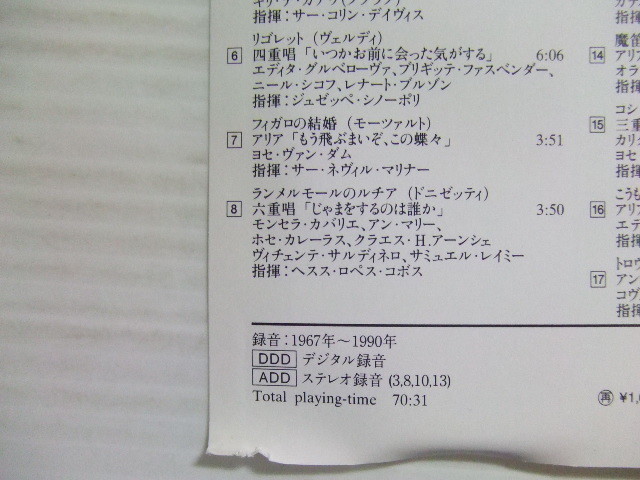 指揮：サー・コリン・デイヴィス
リゴレット（ヴェルディ）
6 四重唱「いつかお前に会った気がする」 6:06
エディタ・グルベローヴァ、ブリギッテ・ファスベンダー、
ニール・シコフ、レナート・ブルゾン
指揮：ジュゼッペ・シノーポリ
フィガロの結婚（モーツァルト）
7 アリア「もう飛ぶまいぞ、この蝶々」 3:51
ヨセ・ヴァン・ダム
指揮：サー・ネヴィル・マリナー
ランメルモールのルチア（ドニゼッティ）
8 六重唱「じゃまをするのは誰か」 3:50
モンセラ・カバリエ、アン・マリー、
ホセ・カレーラス、クラエス・H.アーンシェ
ヴィチェンテ・サルディネロ、サミュエル・レイミー
指揮：ヘスス・ロペス・コボス
録音：1967年〜1990年
DDD デジタル録音
ADD ステレオ録音 (3,8,10,13)
Total playing-time 70:31
指揮
魔笛
14 アリ
オラ
指揮
コシ
15 三重
カリ
ヨセ
指揮
こうも
16 アリ
エデ
指揮
トロ
17 アン
コヴ
指揮
再 ¥1,